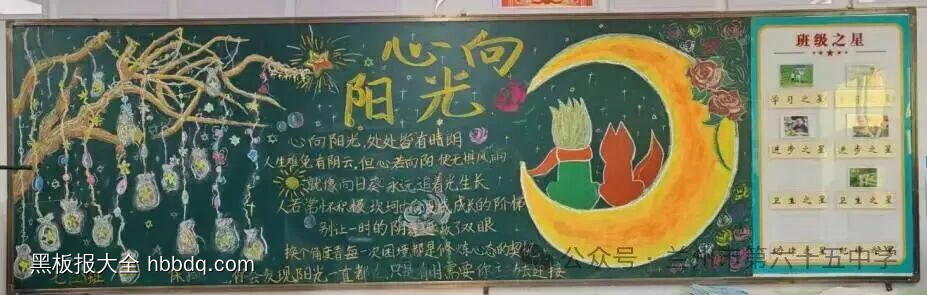 心向
阳光
心向阳光,处处皆有晴朗
人生难免有阴云,但心若向阳 便无惧风雨
就像向日葵 永远追着光生长
人若常怀积极 坎坷 成长的阶梯
别让一时的阴 了双眼
换个角度看每一次困境都是修炼心态的契机
会发现阳光一直都 只是 需要你 去连接
班级之星
学习之星
进步之星 进步之星
卫生之星 卫生之星
黑板报大全 hbbdq.com
公众号·兰州市第六十五中学